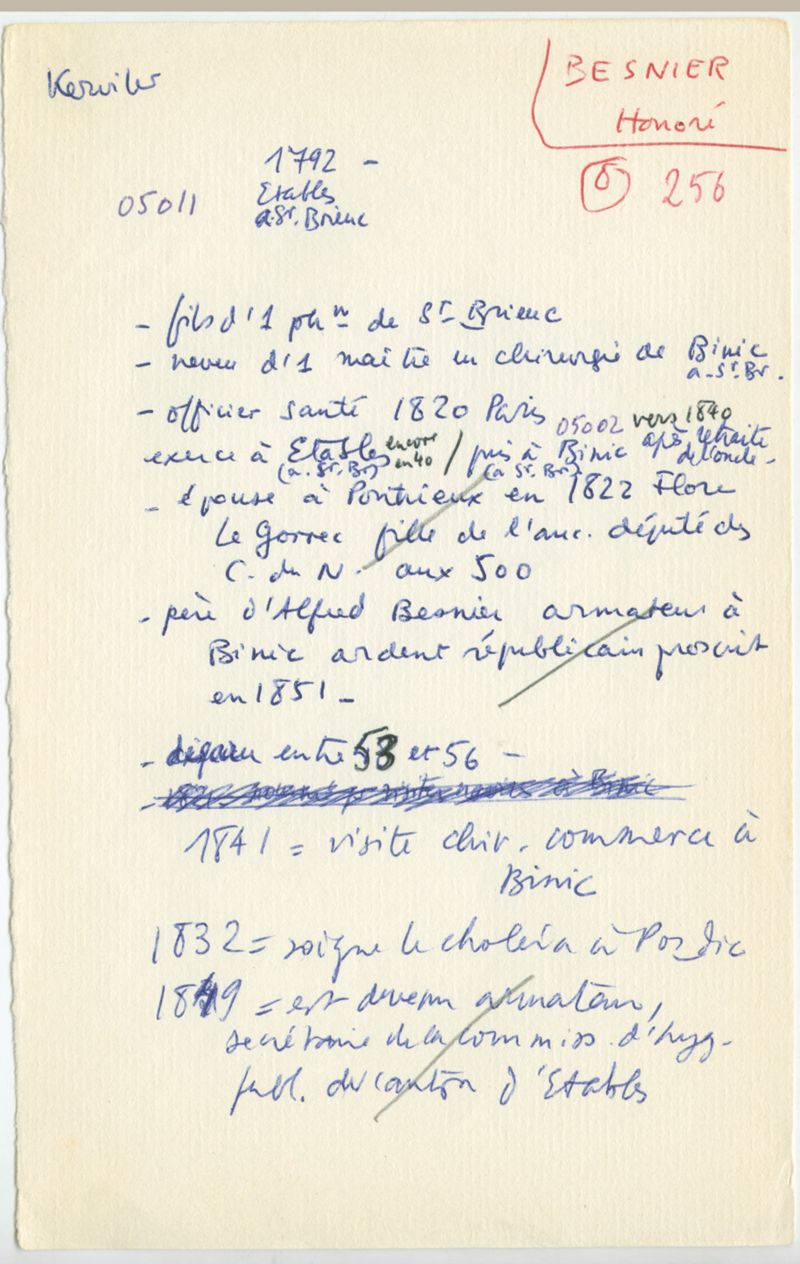 Kerviler
BESNIER
Honoré
1792 -
05011
Etables
a. St. Brieuc
6 256
- fils d'1 phn de St Brieuc
- neveu d'1 maître en chirurgie de Binic
a. St. Br.
- officier santé 1820 Paris
05002 vers 1840
exerce à Etables encore en 40 / puis à Binic après retraite de l'oncle -
(a. St. Br) (a St. Br)
- épouse à Pontrieux en 1822 Flore
Le Gorrec fille de l'anc. député des
C. du N. aux 500
- père d'Alfred Besnier armateur à
Binic ardent républicain proscrit
en 1851 -
- entre 53 et 56 -
1841 = visite chir. commerce à
Binic
1832 = soigne le choléra à Pordic
1849 = est devenu armateur,
secrétaire de la commiss. d'hyg.
publ. du canton d'Etables